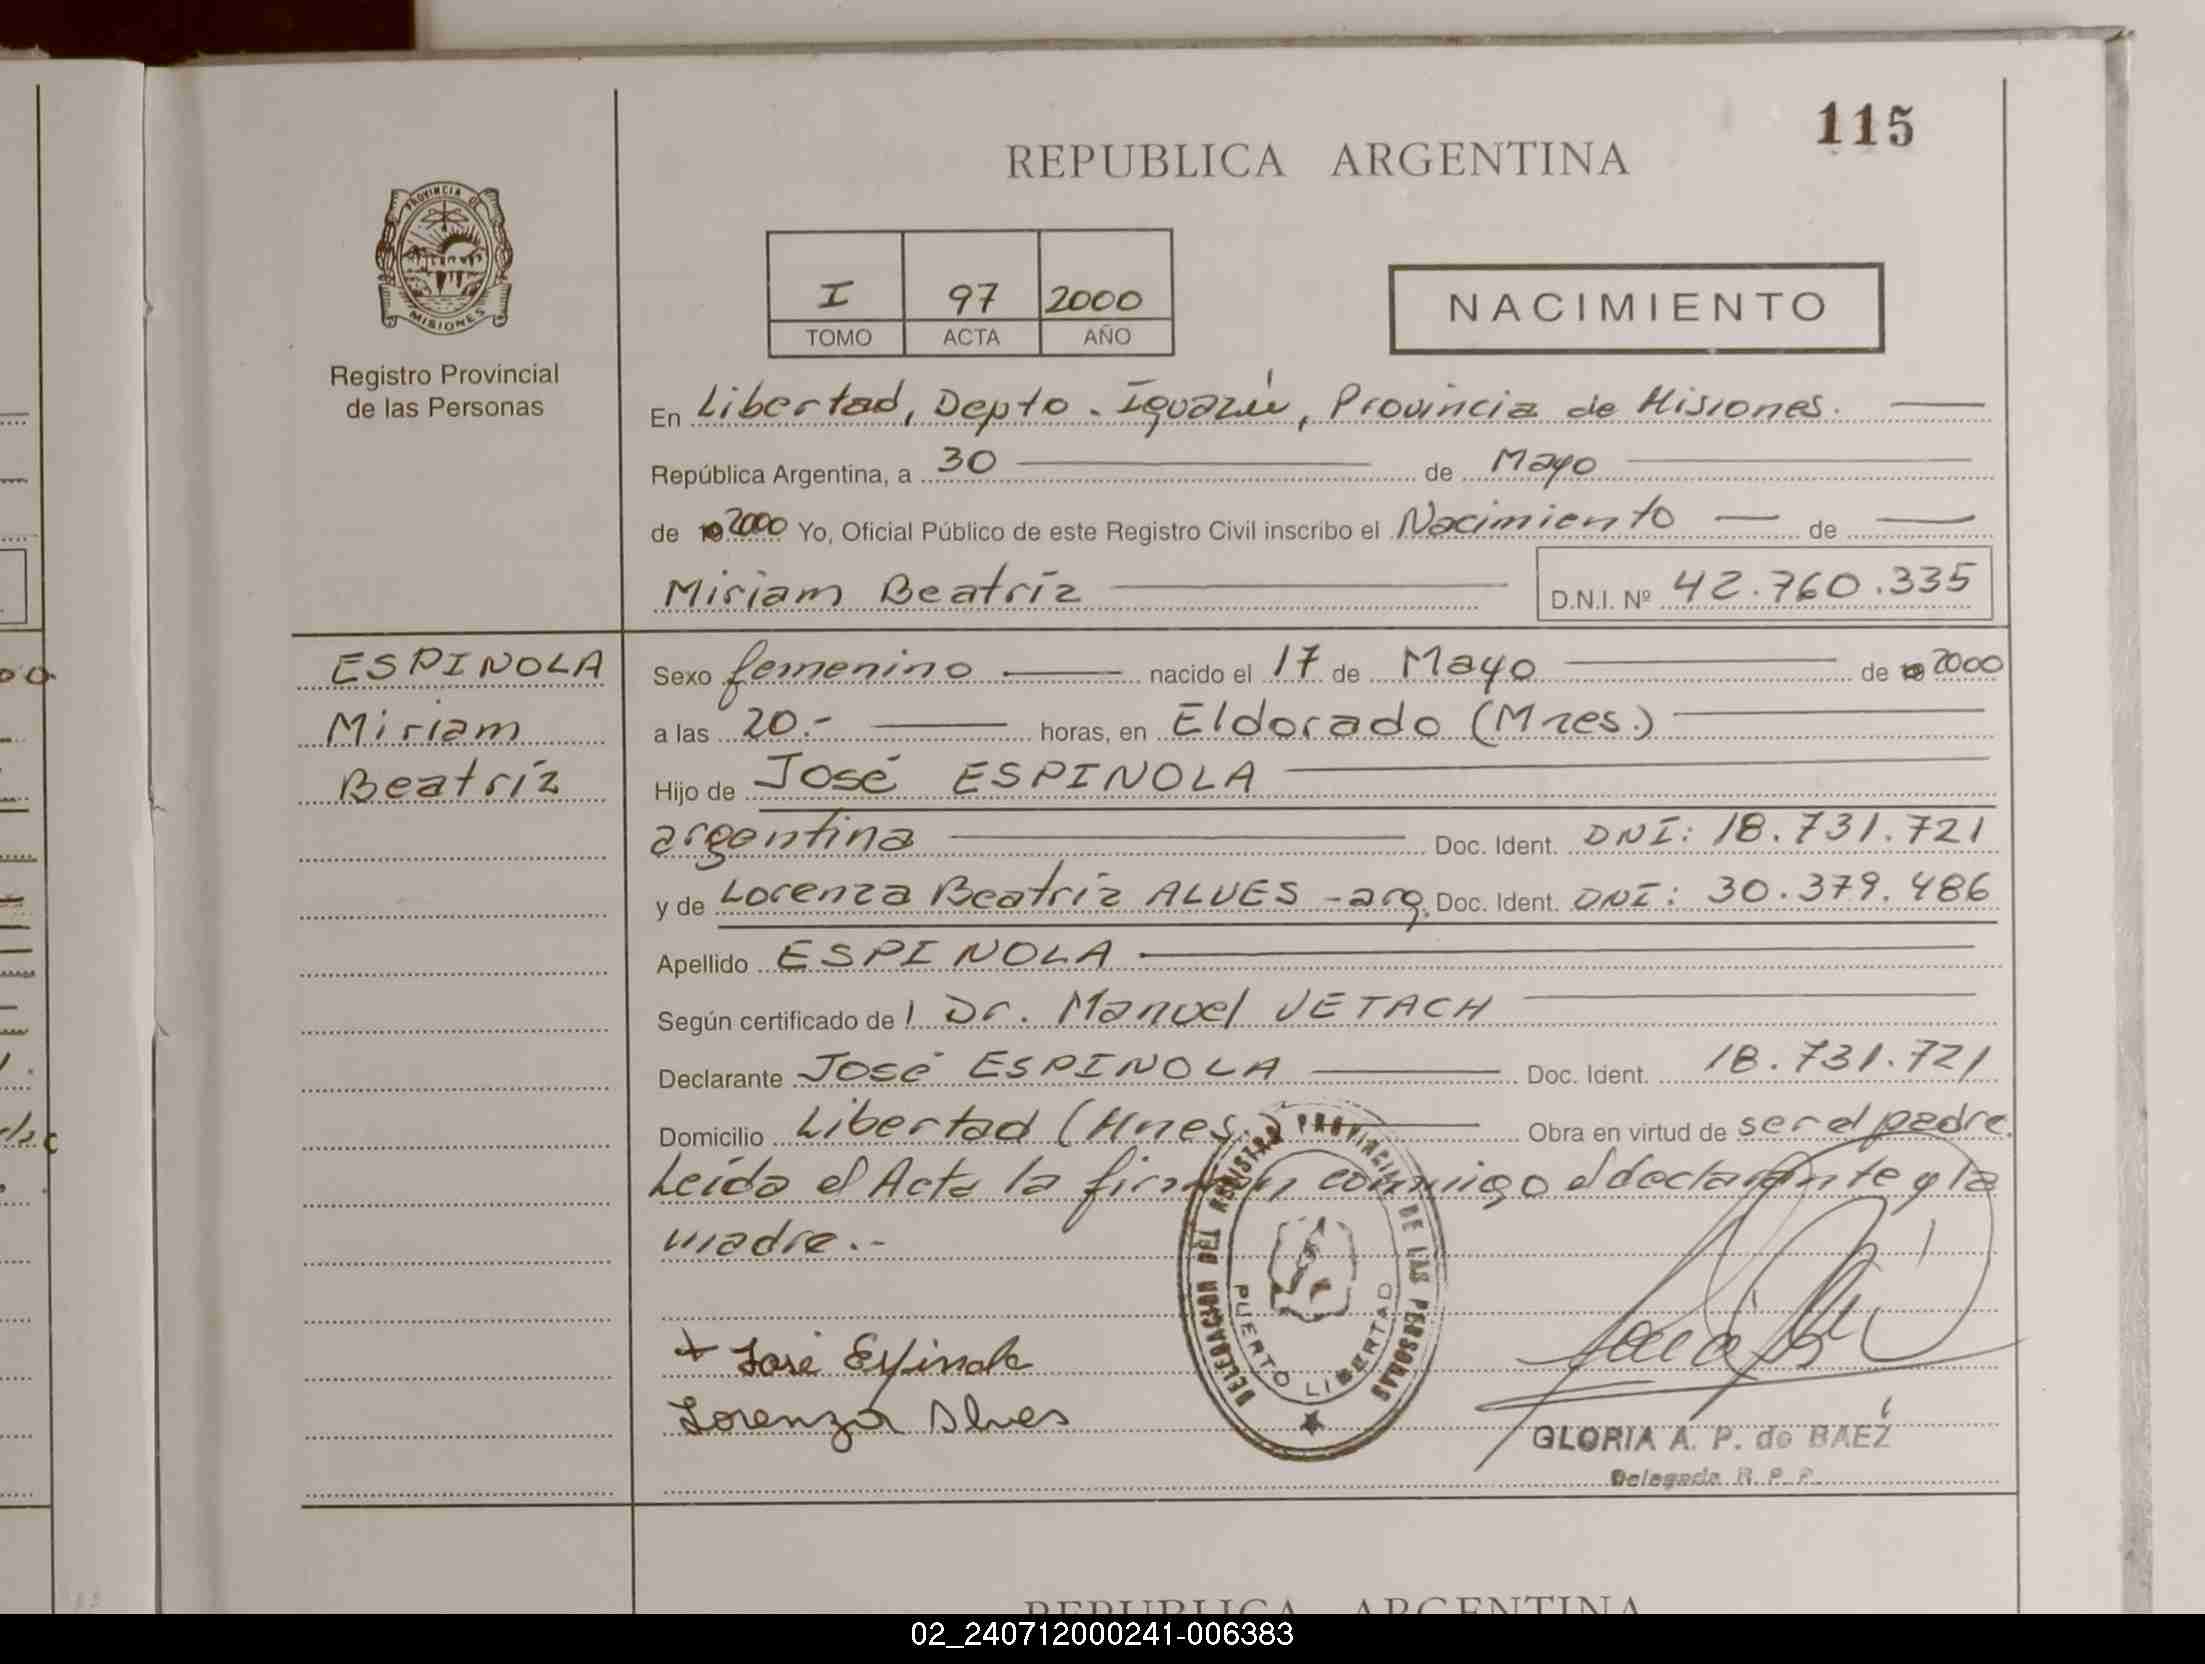 115
REPUBLICA ARGENTINA
PROVINCIA DE
MISIONES
Registro Provincial
de las Personas
I 97 2000
TOMO ACTA AÑO
NACIMIENTO
En Libertad, Depto. Iguazú, Provincia de Misiones.
República Argentina, a 30 de Mayo
de 2000 Yo, Oficial Público de este Registro Civil inscribo el Nacimiento de
Miriam Beatríz D.N.I. Nº 42.760.335
ESPINOLA
Miriam
Beatríz
Sexo femenino nacido el 17 de Mayo de 2000
a las 20.- horas, en Eldorado (Mnes.)
Hijo de José ESPINOLA
argentina Doc. Ident. DNI: 18.731.721
y de Lorenza Beatríz ALVES - arg. Doc. Ident. DNI: 30.379.486
Apellido ESPINOLA
Según certificado de l Dr. Manuel JETACH
Declarante José ESPINOLA Doc. Ident. 18.731.721
Domicilio Libertad (Mnes.) Obra en virtud de ser el padre.
Leída el Acta la firman conmigo el declarante y la
madre.-
DELEGACION DEL REGISTRO PROVINCIAL DE LAS PERSONAS
PUERTO LIBERTAD
José Espinola
Lorenza Alves
GLORIA A. P. de BAEZ
Delegada R. P. P.
REPUBLICA ARGENTINA
02_240712000241-006383